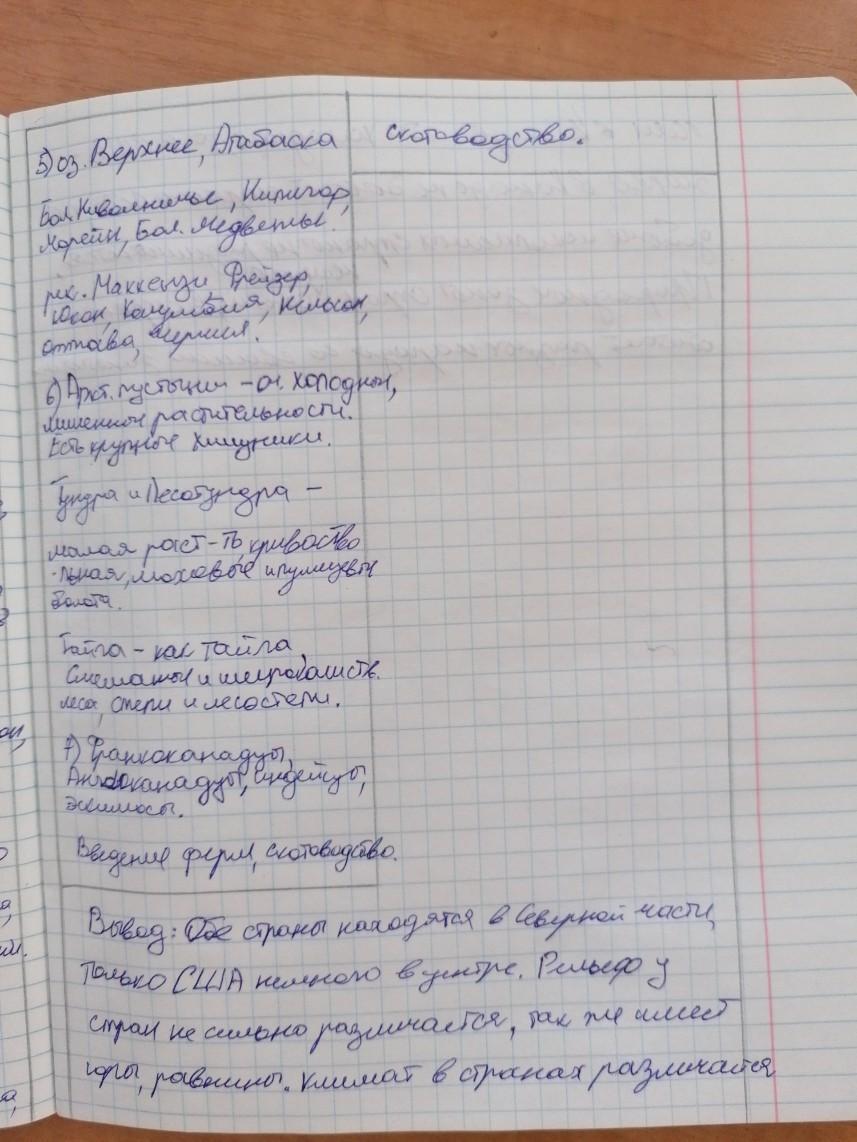 5) оз. Верхнее, Атабаска
скотоводство.
Бол. Невольничье,
Бол. Медвежье.
рек. Маккензи, Фрейзер,
Юкон, Колумбия, Нельсон,
оттава, Черчил.
6) Аркт. пустыни – оч. холодный,
лишенный растительности.
Есть крупные хищники.
Тундра и Лесотундра –
малая раст-ть, кривоство
-льная, моховые и пушицевые
болота.
Тайга – как тайга
Смешаный и широколиств.
леса, степи и лесостепи.
7) Франкоканадцы,
Англоканадцы, индейцы,
эскимосы.
Введение ферм, скотоводство.
Вывод: Обе страны находятся в Северной части,
только США немного в центре. Рельеф у
стран не сильно различается, так же имеет
горы, равнины. климат в странах различается